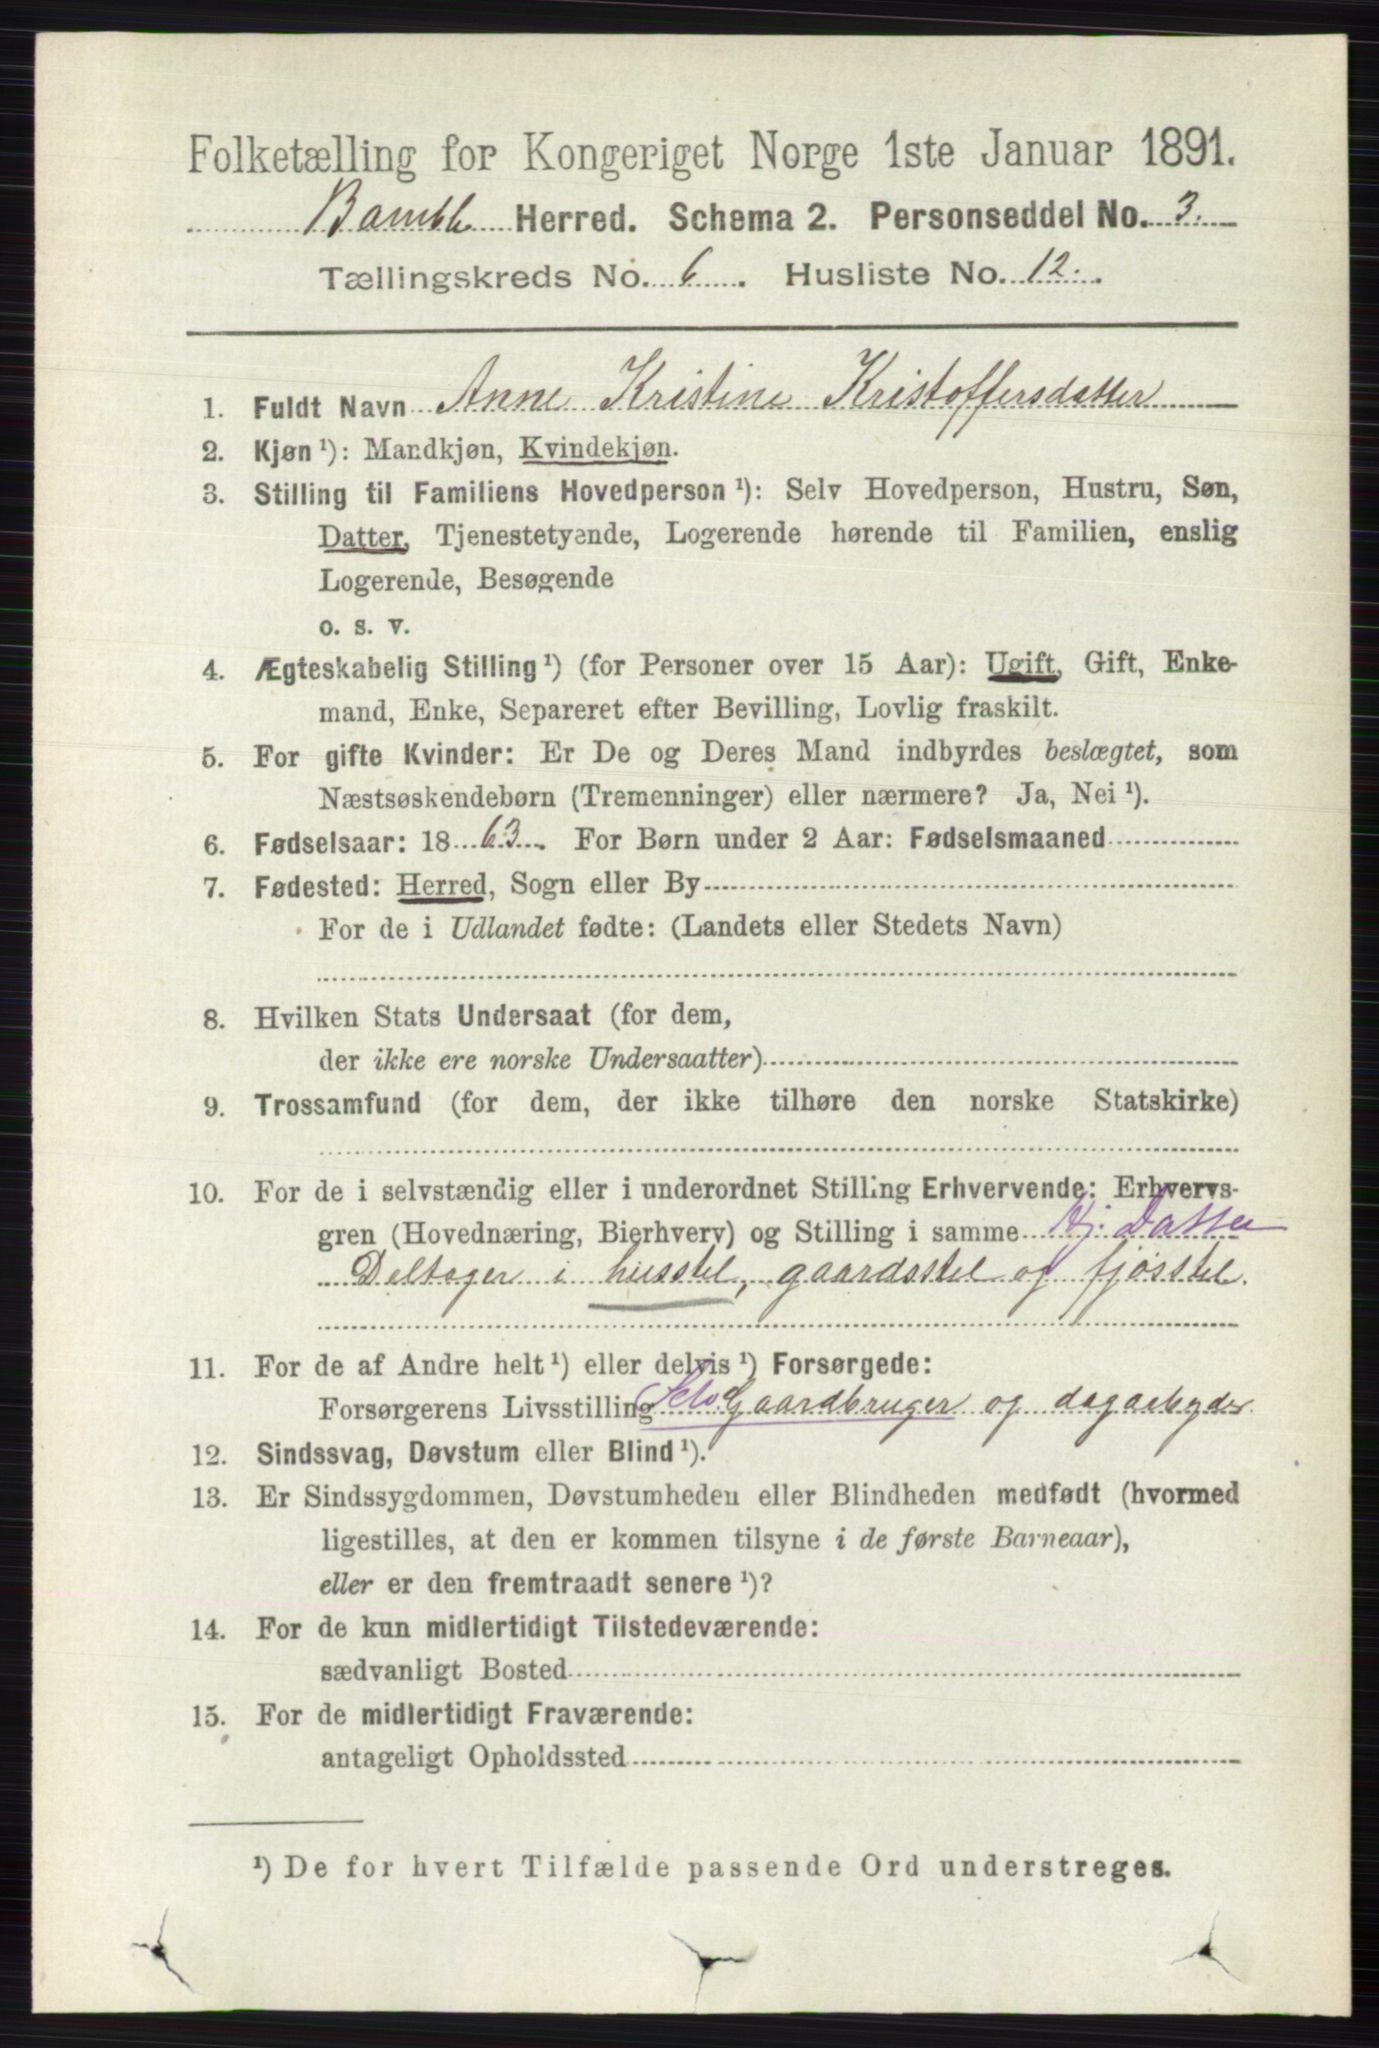 Folketælling for Kongeriget Norge 1ste Januar 1891.
Bamble Herred. Schema 2. Personseddel No. 3.
Tællingskreds No. 6. Husliste No. 12.
1. Fuldt Navn Anne Kristine Kristoffersdatter
2. Kjøn ¹): Mandkjøn, Kvindekjøn.
3. Stilling til Familiens Hovedperson ¹): Selv Hovedperson, Hustru, Søn,
Datter, Tjenestetyende, Logerende hørende til Familien, enslig
Logerende, Besøgende
o. s. v.
4. Ægteskabelig Stilling ¹) (for Personer over 15 Aar): Ugift, Gift, Enke-
mand, Enke, Separeret efter Bevilling, Lovlig fraskilt.
5. For gifte Kvinder: Er De og Deres Mand indbyrdes beslægtet, som
Næstsøskendebørn (Tremenninger) eller nærmere? Ja, Nei ¹).
6. Fødselsaar: 1863. For Børn under 2 Aar: Fødselsmaaned
7. Fødested: Herred, Sogn eller By
For de i Udlandet fødte: (Landets eller Stedets Navn)
8. Hvilken Stats Undersaat (for dem,
der ikke ere norske Undersaatter)
9. Trossamfund (for dem, der ikke tilhøre den norske Statskirke)
10. For de i selvstændig eller i underordnet Stilling Erhvervende: Erhvervs-
gren (Hovednæring, Bierhverv) og Stilling i samme Hj. Datter
Deltager i husstel, gaardsstel og fjøsstel.
11. For de af Andre helt ¹) eller delvis ¹) Forsørgede:
Forsørgerens Livsstilling Selv. Gaardbruger og dagarbyder.
12. Sindssvag, Døvstum eller Blind ¹).
13. Er Sindssygdommen, Døvstumheden eller Blindheden medfødt (hvormed
ligestilles, at den er kommen tilsyne i de første Barneaar),
eller er den fremtraadt senere ¹)?
14. For de kun midlertidigt Tilstedeværende:
sædvanligt Bosted
15. For de midlertidigt Fraværende:
antageligt Opholdssted
¹) De for hvert Tilfælde passende Ord understreges.